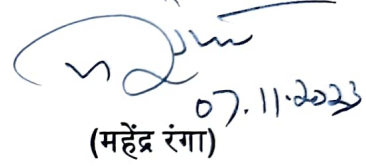 07.11.2023
(महेंद्र रंगा)